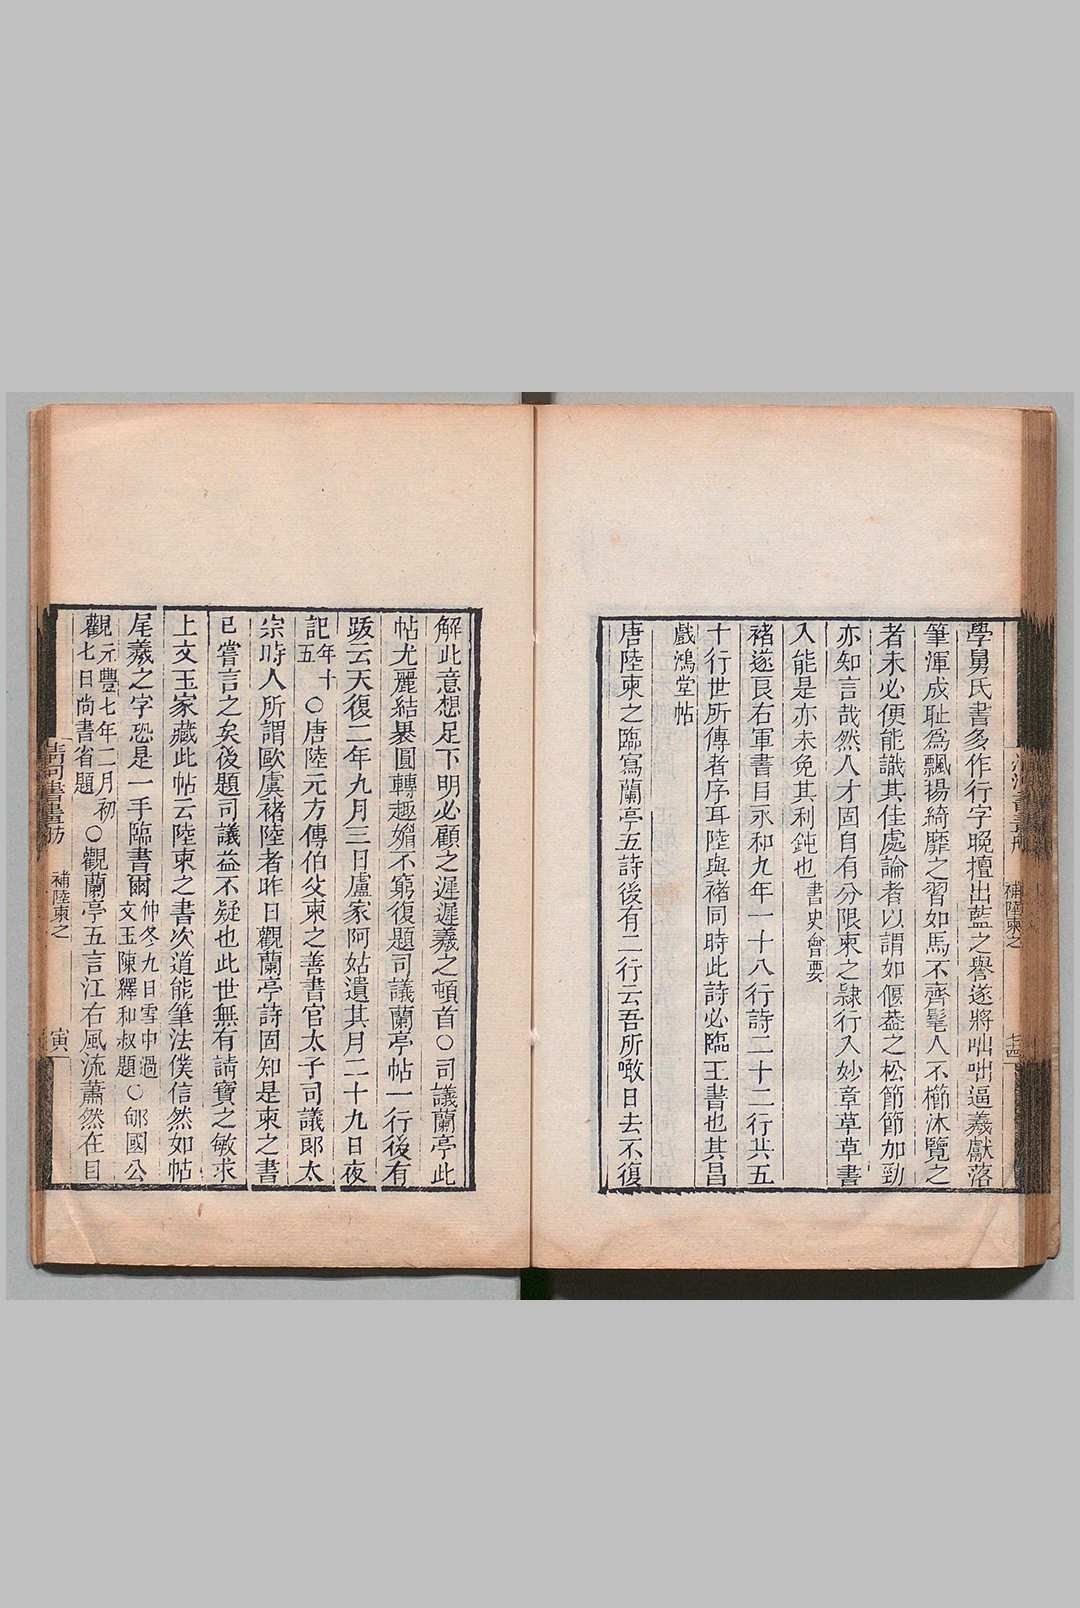 學舅氏書多作行字晚擅出藍之譽遂將咄咄逼羲獻落
筆渾成耻爲飄揚綺靡之習如馬不齊髦人不櫛沐覽之
者未必便能識其佳處論者以謂如偃蓋之松節節加勁
亦知言哉然人才固自有分限柬之隸行入妙章草草書
入能是亦未免其利鈍也書史會要
褚遂良右軍書目永和九年一十八行詩二十二行共五
十行世所傳者序耳陸與褚同時此詩必臨王書也其昌
戲鴻堂帖
唐陸柬之臨寫蘭亭五詩後有二行云吾所噉日去不復
補陸柬之
解此意想足下明必顧之遲遲羲之頓首○司議蘭亭此
帖尤麗結摹圓轉趣媚不窮復題司議蘭亭帖一行後有
跋云天復二年九月三日盧家阿姑遺其月二十九日夜
記年十五○唐陸元方傳伯父柬之善書官太子司議郎太
宗時人所謂歐虞褚陸者昨日觀蘭亭詩固知是柬之書
已嘗言之矣後題司議益不疑也此世無有請寶之敏求
上文玉家藏此帖云陸柬之書次道能筆法僕信然如帖
尾羲之字恐是一手臨書爾仲冬九日雪中過文玉陳繹和叔題○郇國公
觀元豐七年二月初七日尚書省題○觀蘭亭五言江右風流蕭然在目
清河書畫舫
補陸柬之
寅